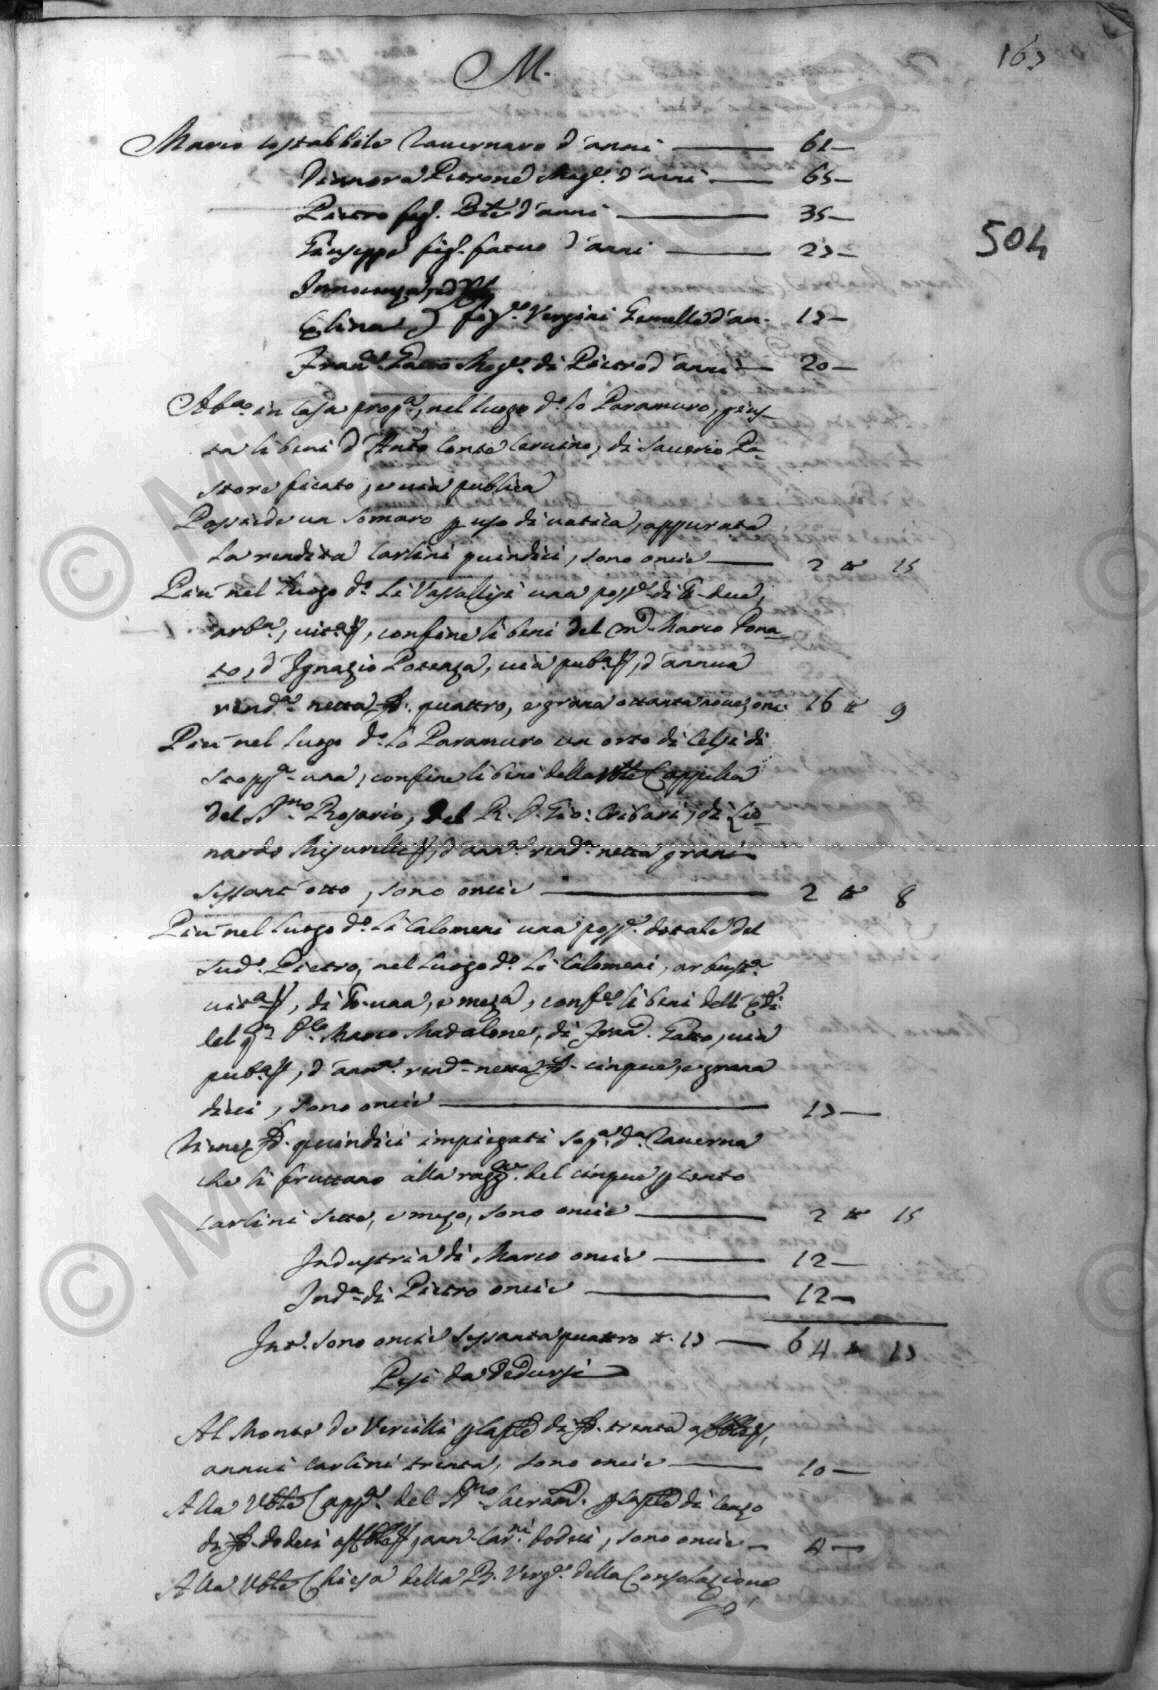 M.
163
Marco Costabbile Tavernaro d'anni — 61 —
Dianora Perrone Mog.e d'anni — 65 —
Pietro fig.o d'anni — 35 —
504
Giuseppe fig.o fatuo d'anni — 23 —
Innocenza, ed
Elina fig.e Vergini Gemelle d'an. 13 —
Fran.ca Gatto Mog.e di Pietro d'anni — 20 —
Ab.no in Casa prop.a, nel luogo d.o lo Paramuro, gius-
ta li beni d'Ant.o Conte, di Saverio Pa-
store ficato, e via publica
Possiede un Somaro p uso di vatica, appurata
la rendita Carlini quindici, sono oncie — 2 tt 15
Piu nel luogo d.o li Vassallizzi una poss.e di tt.e due,
arb.a, vit.a, confine li beni del Marco Dona-
to, d'Ignazio Potenza, via pub.a, d'annua
rend.a netta quattro, e grana ottanta nove, onc. 16 tt 9
Piu nel luogo d.o lo Paramuro un orto di Celzi di
stopp.a una, confine li beni della Ven.le Cappella
del SS.mo Rosario, del R. D. Gio: Cribari, di Leo-
nardo Misuelli, d'ann.a rend.a netta grani
sessant'otto, sono oncie — 2 tt 8
Piu nel luogo d.o li Calomeni una poss.e dotale del
sud.o Pietro, nel luogo d.o li Calomeni, arbust.a
vit.a, di tt.e una, e meza, conf.e li beni dell'Er.di
del q.m Marco Madalone, di Fran.o Gatto, via
pub.a, d'ann.a rend.a netta cinque, e grana
dieci, sono oncie — 17 —
Tiene quindici impiegati sop.a d.a Taverna
che li fruttano alla ragg.e del cinque p cento
carlini sette, e mezo, sono oncie — 2 tt 15
Industria di Marco oncie — 12 —
Ind.a di Pietro oncie — 12 —
Int.o sono oncie sessantaquattro tt. 17 — 64 tt 17
Pesi da Dedursi
Al Monte de Vercilli di trenta
annui Carlini trenta, sono oncie — 10 —
Alla Ven.le Capp.a del SS.mo Sacram.o di Cenzo
di dodeci, ann. Car.ni dodeci, sono oncie — 4 —
Alla Ven.le Chiesa della B. Verg.e della Consolazione